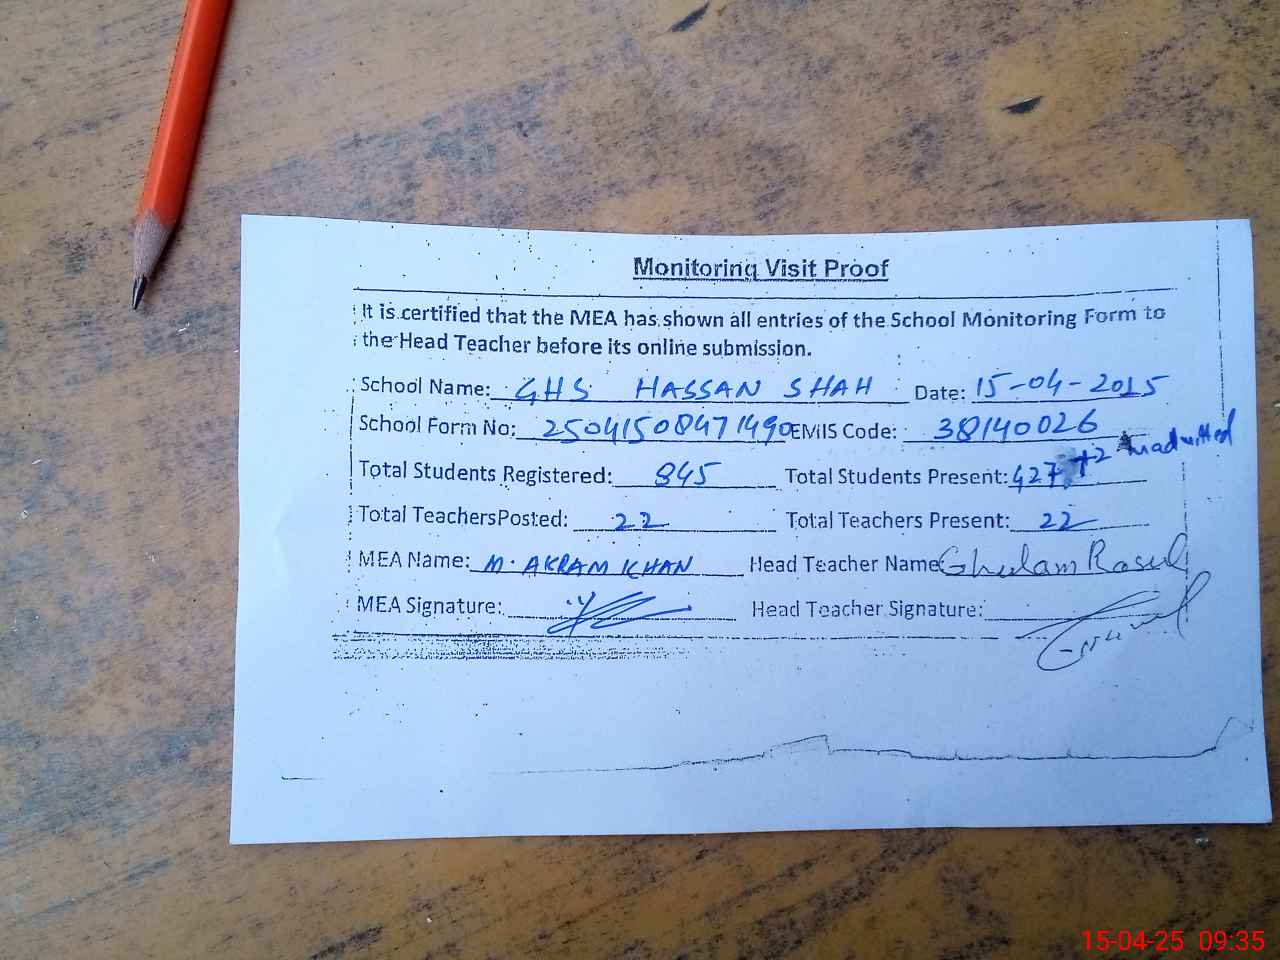 Monitoring Visit Proof
It is certified that the MEA has shown all entries of the School Monitoring Form to
the Head Teacher before its online submission.
School Name: GHS HASSAN SHAH Date: 15-04-2015
School Form No: 25041508471490 EMIS Code: 38140026
Total Students Registered: 845 Total Students Present: 427 +2
Total Teachers Posted: 22 Total Teachers Present: 22
MEA Name: M. AKRAM KHAN Head Teacher Name Ghulam Rasul
MEA Signature: Head Teacher Signature:
15-04-25 09:35